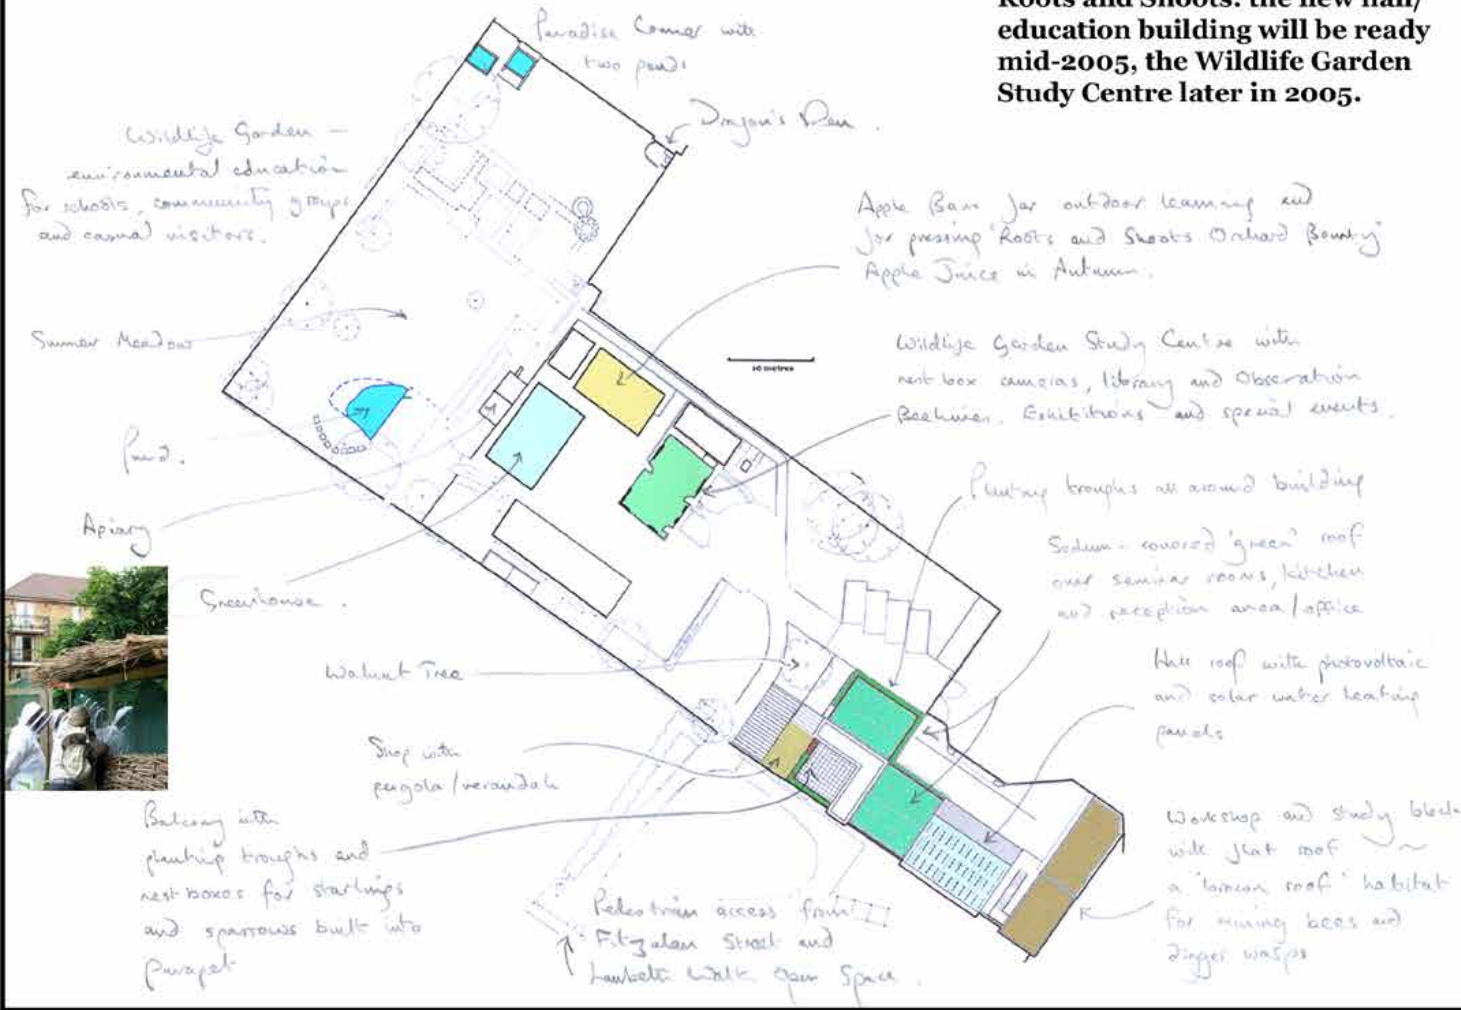 Roots and Shoots: the new hall/
education building will be ready
mid-2005, the Wildlife Garden
Study Centre later in 2005.
Paradise Corner with
two ponds
Dragon's Den.
Wildlife Garden –
environmental education
for schools, community groups
and casual visitors.
Apple Barn for outdoor learning and
for pressing 'Roots and Shoots Orchard Bounty'
Apple Juice in Autumn.
Summer Meadow
10 metres
Wildlife Garden Study Centre with
nest box cameras, library and Observation
Beehives. Exhibitions and special events.
Pond.
Planting troughs all around building
Apiary
Sedum-covered 'green' roof
over seminar rooms, kitchen
and reception area/office
Greenhouse.
Walnut Tree
Hall roof with photovoltaic
and solar water heating
panels
Shop with
pergola/verandah
Balcony with
planting troughs and
nest boxes for starlings
and sparrows built into
parapet
Workshop and study block
with flat roof ~
a 'brown roof' habitat
for mining bees and
digger wasps
Pedestrian access from
Fitzalan Street and
Lambeth Walk Open Space.